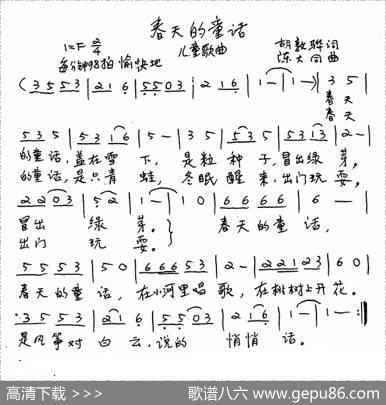 春天的童话
1=F 2/4
儿童歌曲
胡敦骅词
每分钟98拍 愉快地
陈大同曲
(3 5 5 3 | 2 1 6 | 5 5 0 3 | 2 1 6 | 1 - | 1 - ) | 3 5 |
春天
春天
5 3 5 | 5 3 1 6 | 5 - | 3 5 | 5 3 5 | 5 3 1 3 | 2 - |
的童话,盖在雪 下, 是粒 种 子,冒出绿 芽,
的童话,是只青 蛙, 冬眠 醒 来,出门玩 耍,
2 2 0 3 | 5 2 | 1 - | 1 0 | 6 6 6 6 | 6 - |
冒出 绿 芽。} 春天的童 话,
出门 玩 耍。
5 5 5 3 | 5 0 | 6 6 6 5 3 | 2 - | 2 2 1 2 3 | 6 0 |
春天的童 话, 在小河里唱 歌, 在桃树上开 花。
3 5 5 3 | 2 1 6 | 5 5 0 3 | 2 1 6 | 1 - | 1 - :||
是风筝对 白 云,说的 悄悄 话。
高清下载 >>>
歌谱八六 www.gepu86.com